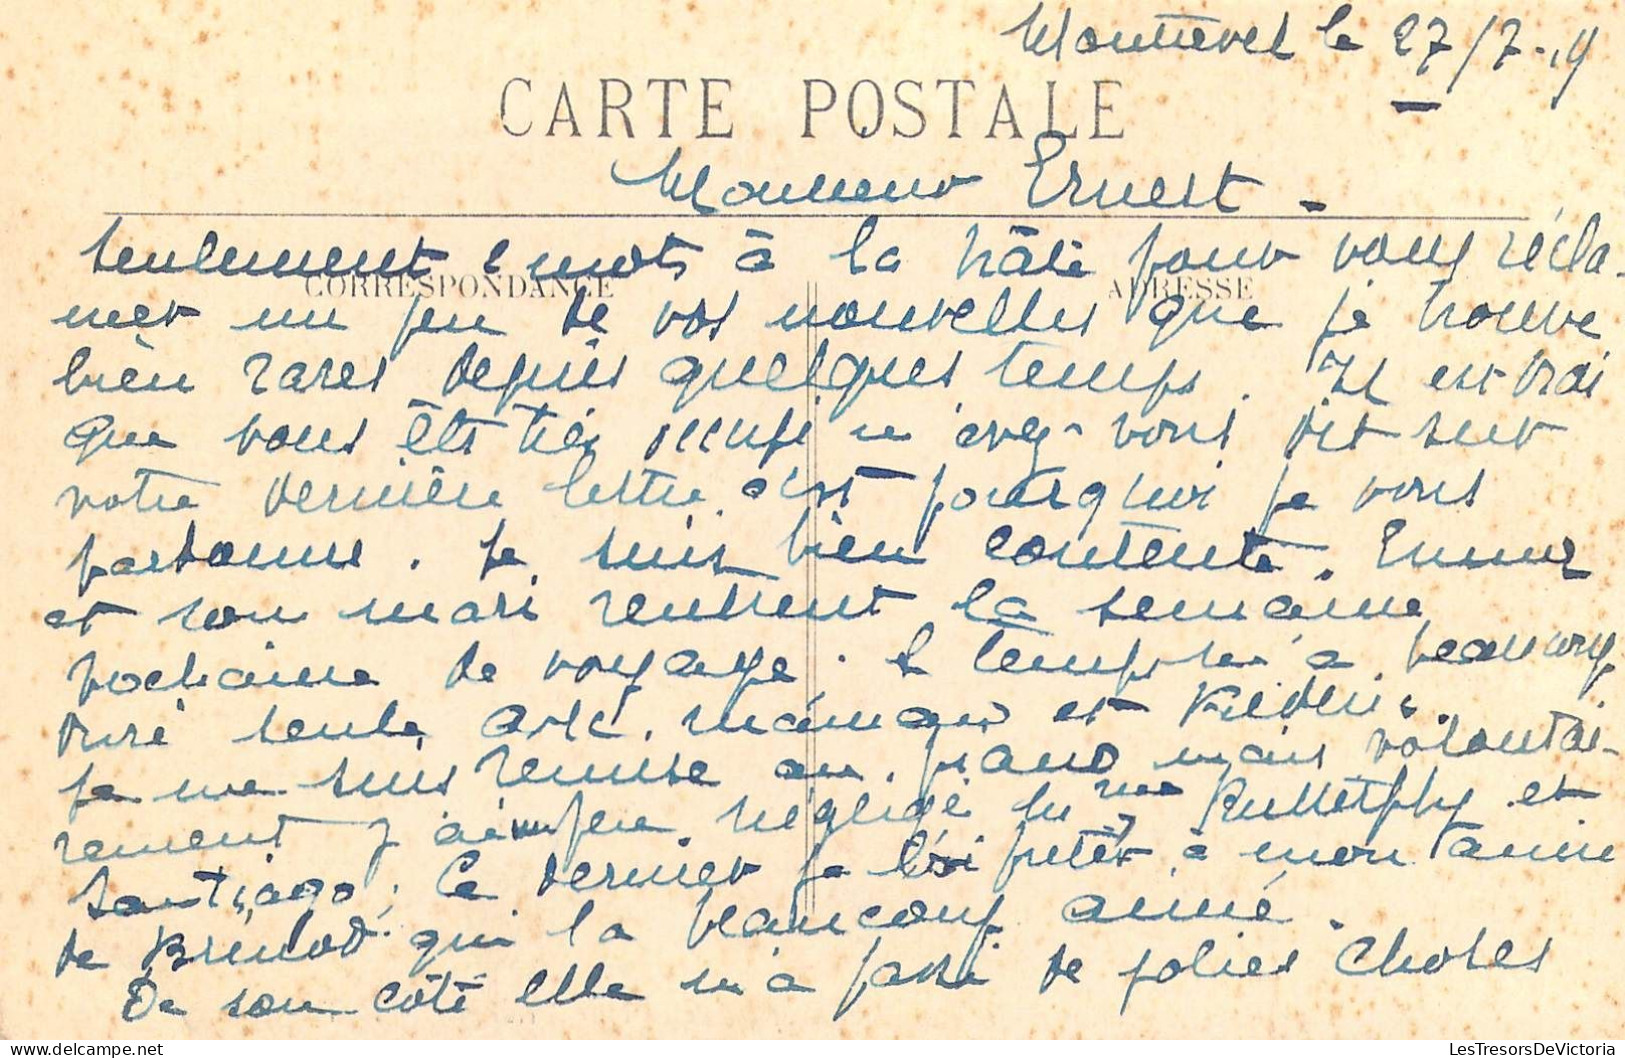 Montrevel le 27/7-19
CARTE POSTALE
Monsieur Ernest -
seulement 2 mots à la hâte pour vous récla-
CORRESPONDANCE ADRESSE
mer un peu de vos nouvelles que je trouve
bien rares depuis quelques temps. Il est vrai
que vous êtes très occupé m'avez-vous dit sur
votre dernière lettre, c'est pourquoi je vous
pardonne. Je suis bien contente,
et son mari rentrent la semaine
prochaine de voyage. le temps m'a beaucoup
duré seule avec et
Je me suis remise au piano mais volontai-
rement j'ai un peu négligé Mme Butterfly et
Santiago; Ce dernier je l'ai prêter à mon amie
de qui l'a beaucoup aimé.
De son côté elle m'a passé de jolies choses
LesTresorsDeVictoria